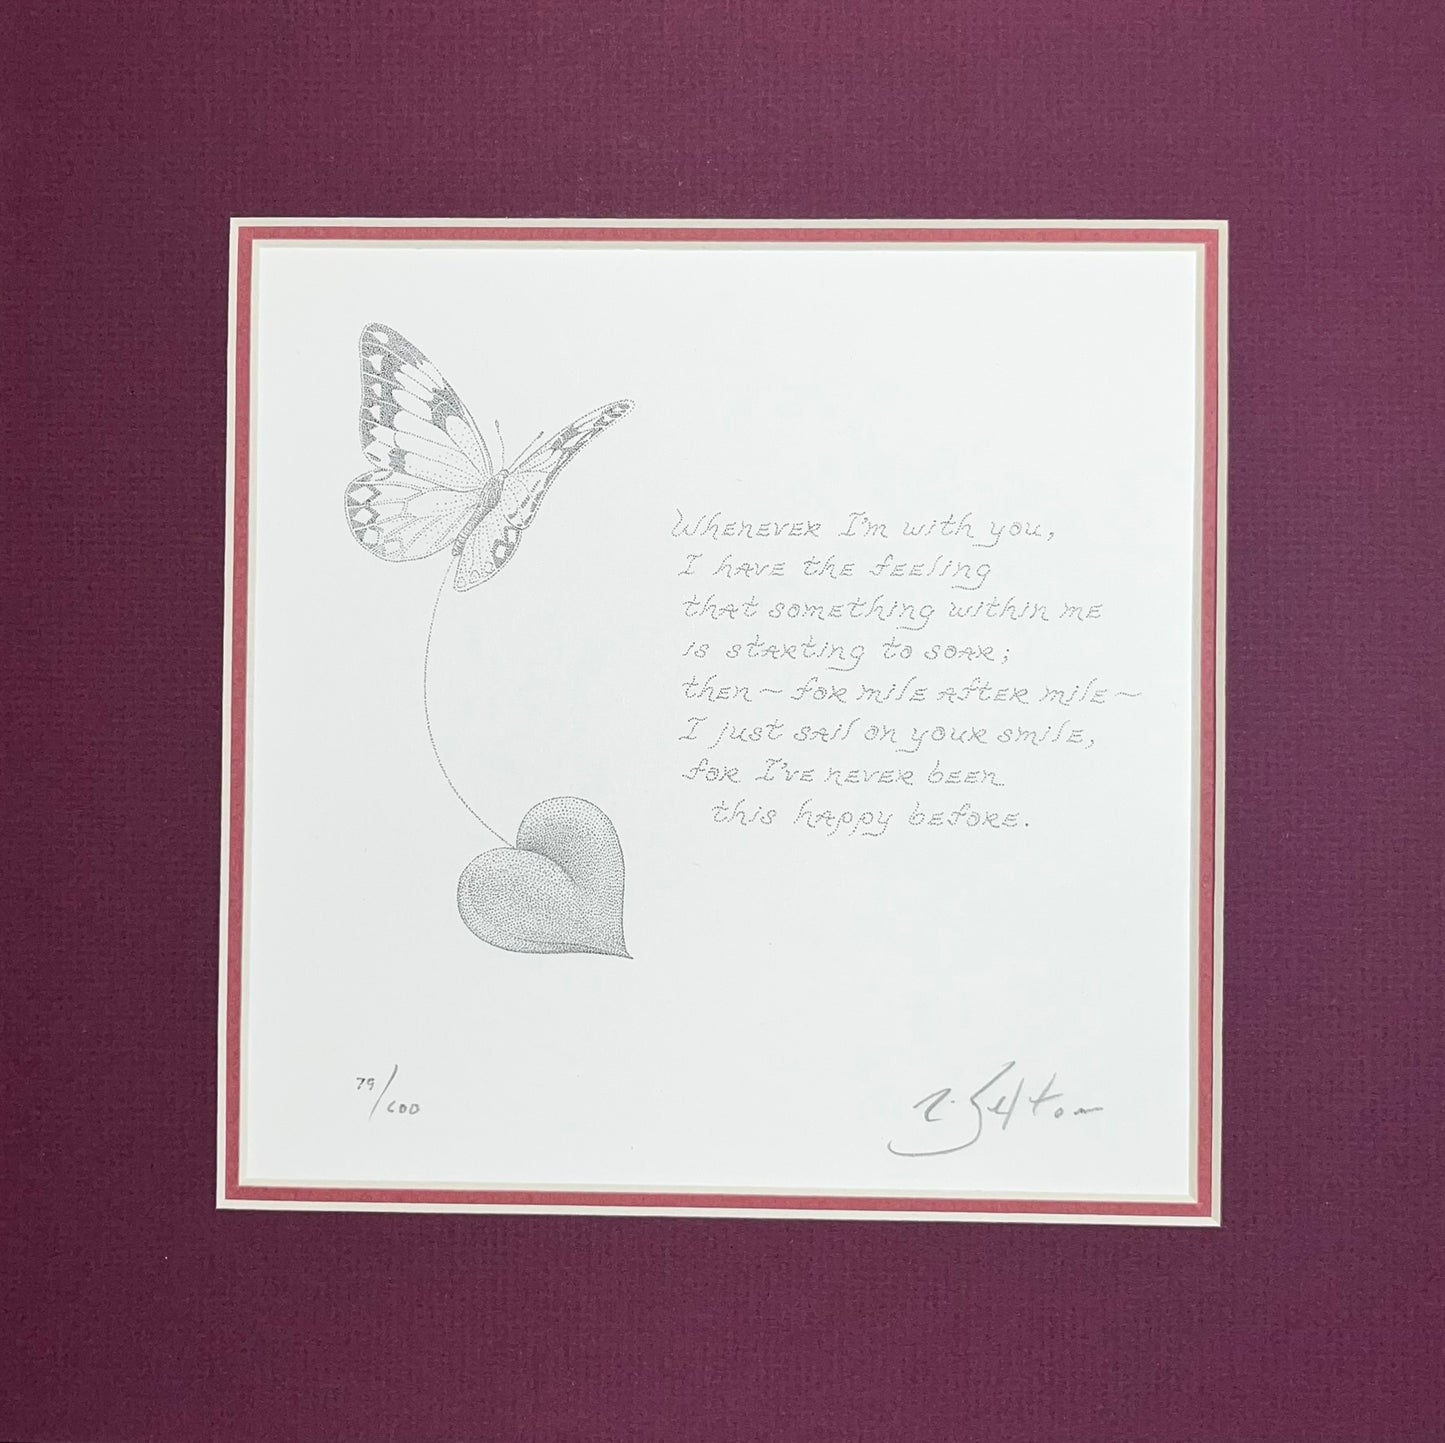 Whenever I'm with you,
I have the feeling
that something within me
is starting to soar;
then ~ for mile after mile ~
I just sail on your smile,
for I've never been
this happy before.
79/600